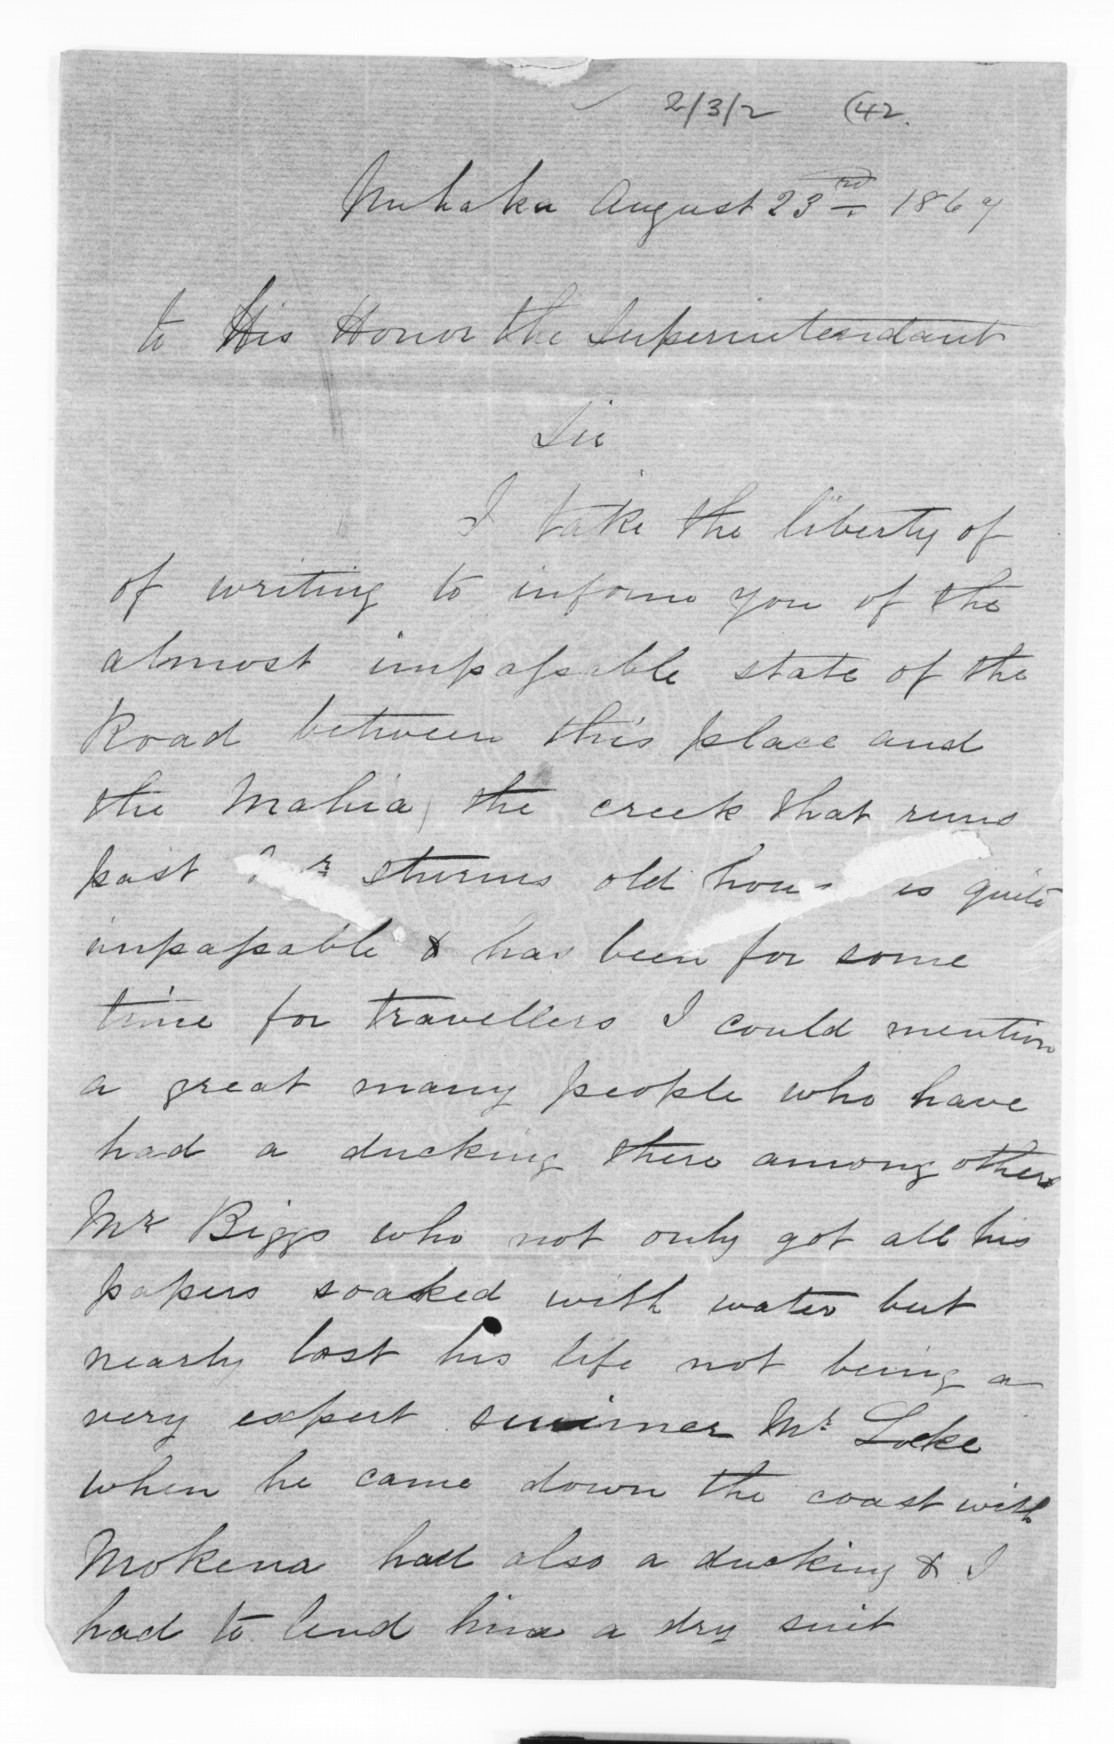 2/3/2 (42.
Nuhaka August 23rd 1867
to His Honor the Superintendant
Sir
I take the liberty of
of writing to inform you of the
almost impassable state of the
Road between this place and
the Mahia, the creek that runs
past Mr Sturms old house is quite
impassable & has been for some
time for travellers I could mention
a great many people who have
had a ducking there among others
Mr Biggs who not only got all his
papers soaked with water but
nearly lost his life not being a
very expert swimer Mr Locke
when he came down the coast with
Mokena had also a ducking & I
had to lend him a dry suit